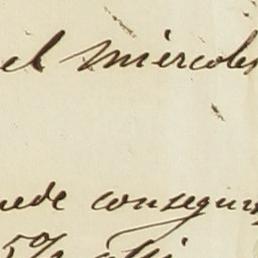 el miércoles
uede conseguir
5%